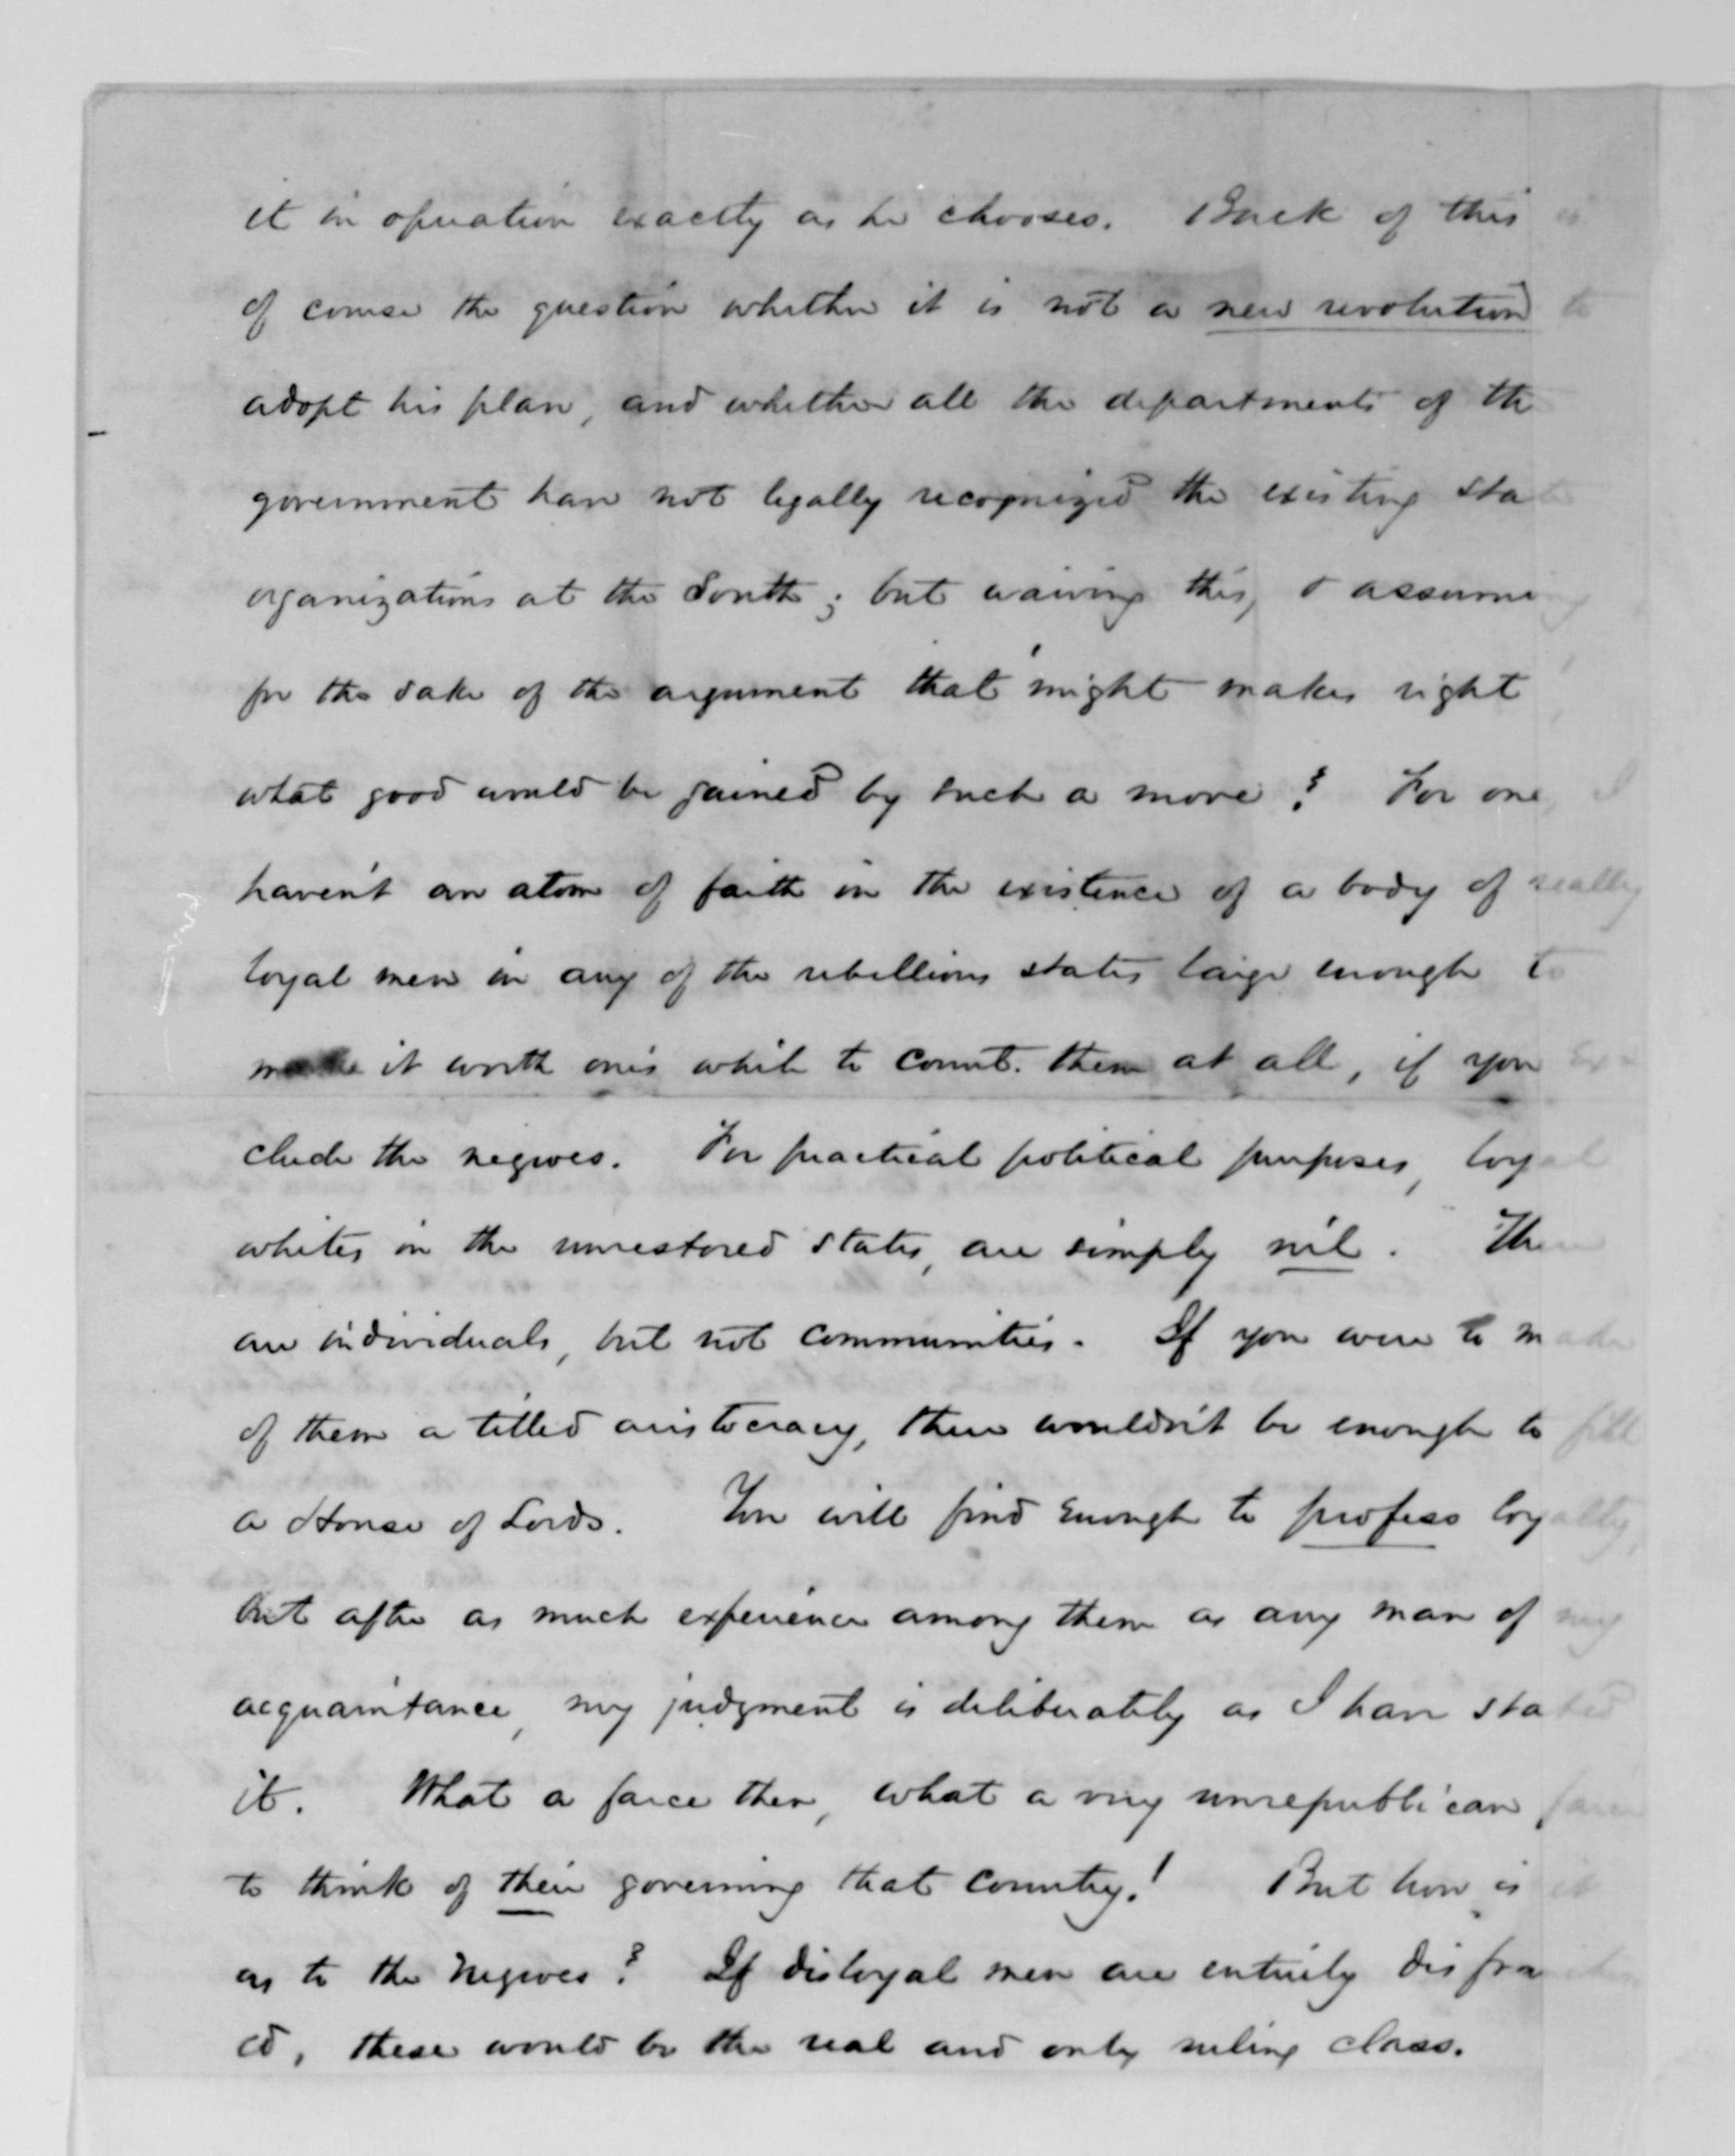 it in operation exactly as he chooses. Back of this is
of course the question whether it is not a new revolution to
adopt his plan, and whether all the departments of the
government have not legally recognized the existing state
organizations at the South; but waiving this, & assuming
for the sake of the argument that might makes right
what good would be gained by such a move? For one, I
haven't an atom of faith in the existence of a body of really
loyal men in any of the rebellious states large enough to
make it worth one's while to count them at all, if you ex-
clude the negroes. For practical political purposes, loyal
whites in the unrestored states, are simply nil. There
are individuals, but not communities. If you were to make
of them a titled aristocracy, there wouldn't be enough to fill
a House of Lords. You will find enough to profess loyalty,
but after as much experience among them as any man of my
acquaintance, my judgment is deliberately as I have stated
it. What a farce then, what a very unrepublican farce
to think of their governing that country! But how is it
as to the negroes? If disloyal men are entirely disfranchis
ed, these would be the real and only ruling class.